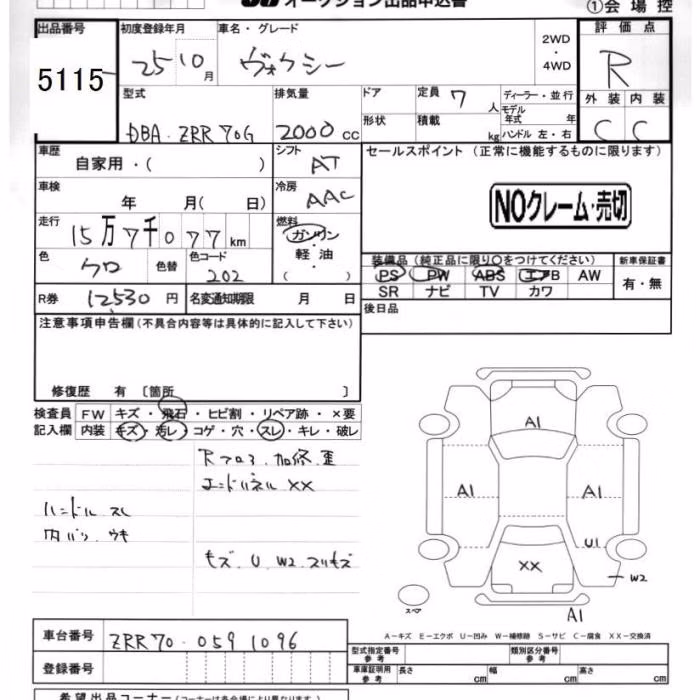 オークション出品申込書
①会場控
出品番号
初度登録年月
車名・グレード
評価点
5115
25 10月
ヴォクシー
2WD
・
4WD
R
型式
排気量
ドア
定員 7 人
ディーラー・並行
外装 内装
DBA・ZRR70G
2000cc
形状
積載 kg
モデル年式 年
ハンドル 左・右
C C
車歴
自家用・( )
シフト AT
セールスポイント (正常に機能するものに限ります)
車検
年 月( 日)
冷房 AAC
NOクレーム・売切
走行 15万7千077km
燃料
ガソリン
・
軽油
( )
色 クロ
色替
色コード 202
装備品 (純正品に限り○をつけてください)
新車保証書
PS PW ABS エアB AW
有・無
R券 12530円
名変通知期限 月 日
SR ナビ TV カワ
注意事項申告欄 (不具合内容等は具体的に記入して下さい)
後日品
修復歴 有 〔箇所 〕
検査員記入欄
FW キズ・飛石・ヒビ割・リペア跡・×要
内装 キズ・汚レ・コゲ・穴・スレ・キレ・破レ
Rフロア加修歪
エンドパネルXX
ハンドル スレ
内バリ ウキ
キズ.U.W2.スリキズ
A1
A1
A1
U1
XX
W2
スペア
A1
A−キズ E−エクボ U−凹み W−補修跡 S−サビ C−腐食 XX−交換済
車台番号 ZRR70-0591096
登録番号
型式指定番号 参考
類別区分番号 参考
車庫証明用 参考 長さ cm 幅 cm 高さ cm
希望出品コーナー (コーナーは各会場により異なります)